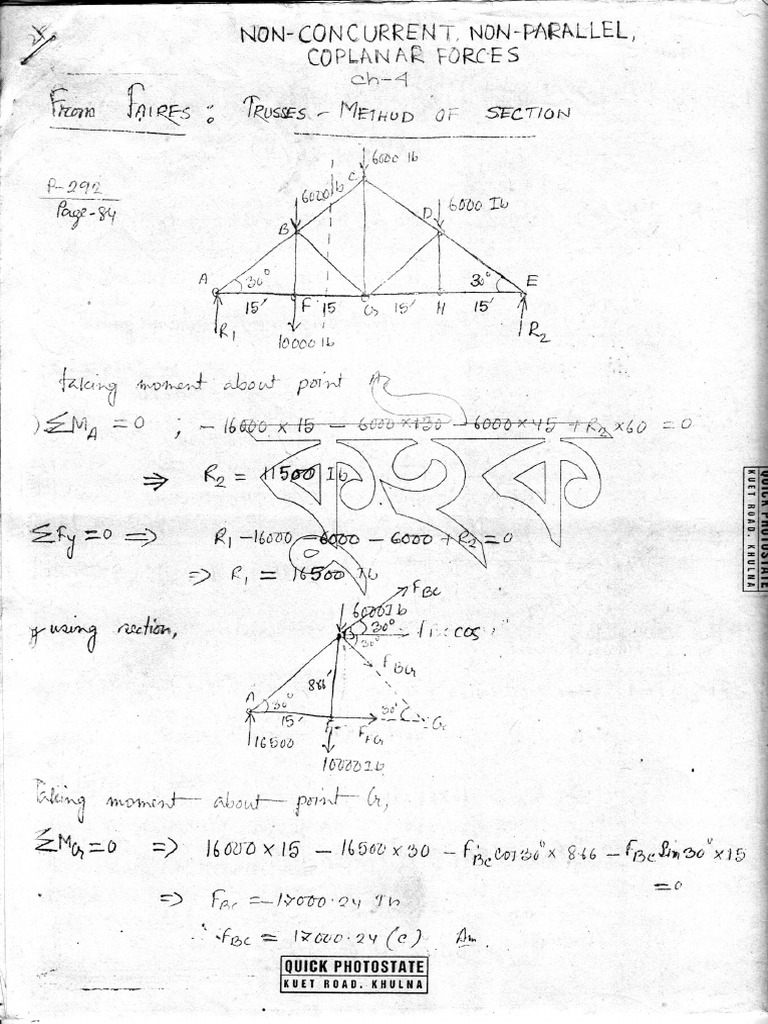 NON-CONCURRENT, NON-PARALLEL,
COPLANAR FORCES
ch-4
From FAIRES: TRUSSES - METHOD OF SECTION
P-292
Page-84
6000 lb
C
6000 lb
6000 Ib
B
D
A
30°
30°
E
15'
F
15
G
15'
H
15'
R1
10000 lb
R2
taking moment about point A
ΣM_A = 0 ; - 16000 × 15 - 6000 × 30 - 6000 × 45 + R2 × 60 = 0
⇒ R2 = 11500 Ib
ΣFy = 0 ⇒ R1 - 16000 - 6000 - 6000 + R2 = 0
⇒ R1 = 16500 Ib
using section,
F_BC
6000 Ib
B
30°
F_BC cos
30°
F_BG
8.66'
A
30°
15'
F
30°
G
F_FG
16500
10000 Ib
Taking moment about point G,
ΣM_G = 0 ⇒ 16000 × 15 - 16500 × 30 - F_BC cos 30° × 8.66 - F_BC Sin 30° × 15 = 0
⇒ F_BC = -17000.24 Ib
∴ F_BC = 17000.24 (C) Am
QUICK PHOTOSTATE
KUET ROAD, KHULNA
QUICK PHOTOSTATE
KUET ROAD, KHULNA